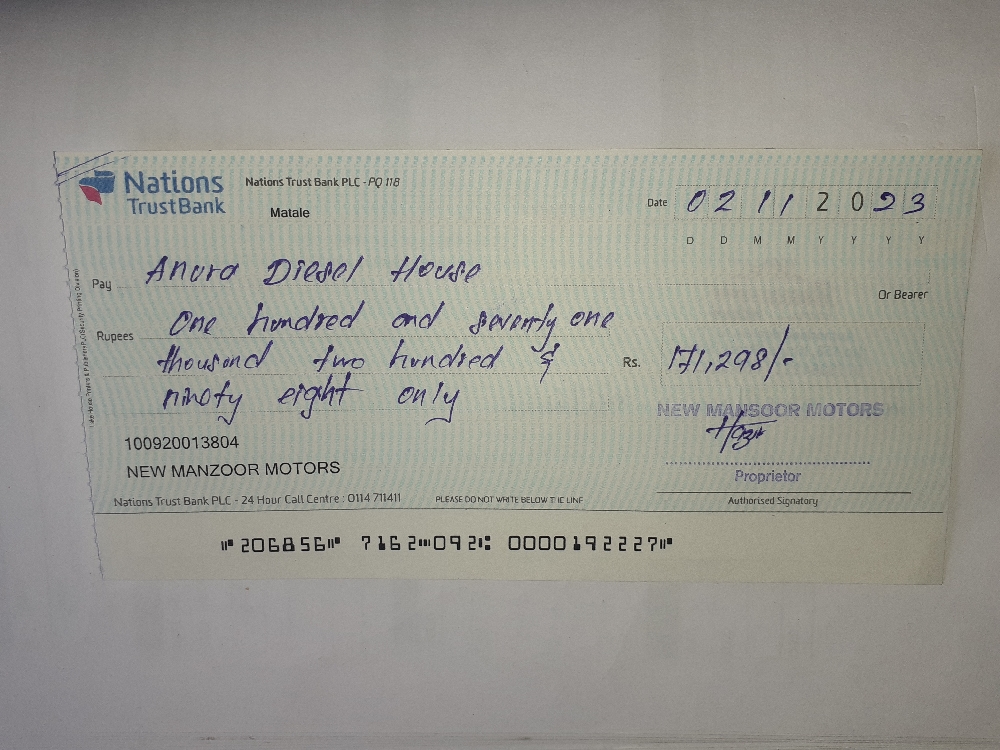 Nations
TrustBank
Nations Trust Bank PLC - PQ 118
Matale
Date 02 11 2023
D D M M Y Y Y Y
Pay Anura Diesel House
Or Bearer
Rupees One hundred and seventy one
thousand two hundred &
ninety eight only
Rs. 171,298/-
NEW MANSOOR MOTORS
Proprietor
Authorised Signatory
100920013804
NEW MANZOOR MOTORS
Nations Trust Bank PLC - 24 Hour Call Centre : 0114 711411
PLEASE DO NOT WRITE BELOW THE LINE
⑈206856⑈ 7162⑉092⑆ 0000192227⑈